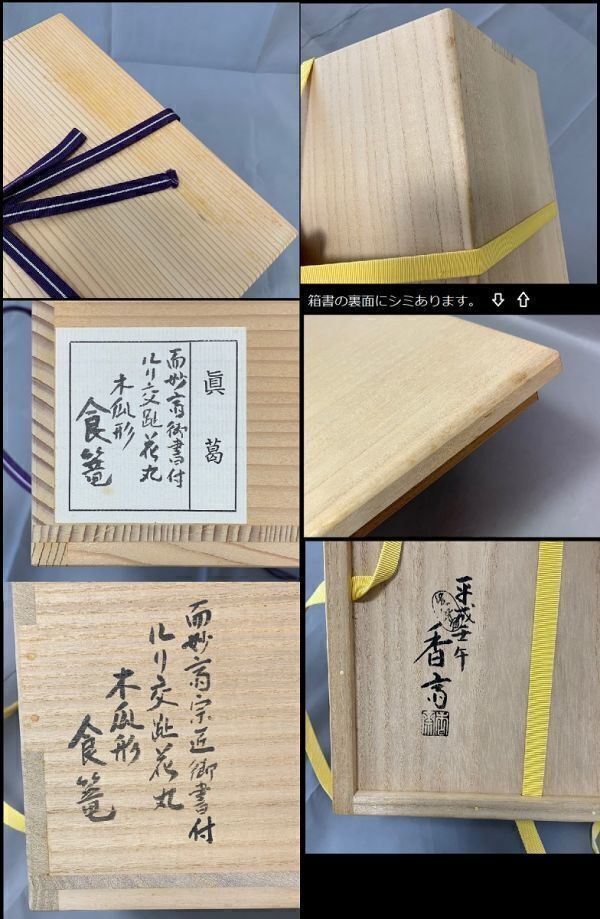 箱書の裏面にシミあります。 ⇩ ⇧
眞葛
而妙斎御書付
ルリ交趾花丸
木瓜形
食篭
而妙斎宗匠御書付
ルリ交趾花丸
木瓜形
食篭
平成壬午
香斎